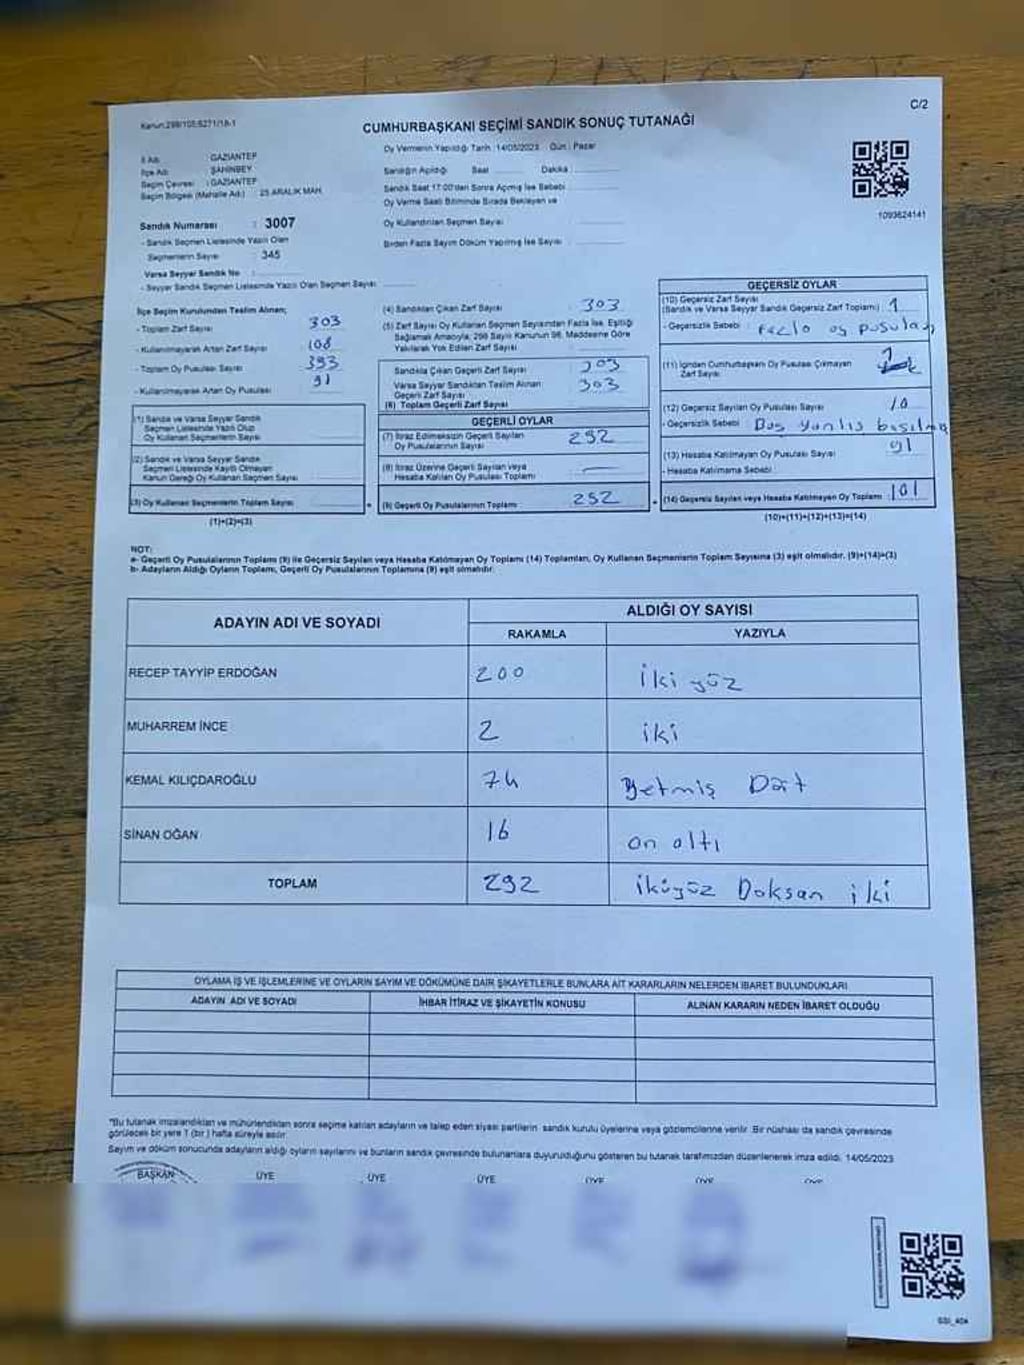 Kanun:298/105;6271/18-1
C/2
CUMHURBAŞKANI SEÇİMİ SANDIK SONUÇ TUTANAĞI
İl Adı: GAZİANTEP
İlçe Adı: ŞAHİNBEY
Seçim Çevresi : GAZİANTEP
Seçim Bölgesi (Mahalle Adı) : 25 ARALIK MAH.
Sandık Numarası : 3007
- Sandık Seçmen Listesinde Yazılı Olan
Seçmenlerin Sayısı : 345
Varsa Seyyar Sandık No :
- Seyyar Sandık Seçmen Listesinde Yazılı Olan Seçmen Sayısı
Oy Vermenin Yapıldığı Tarih :14/05/2023 Gün : Pazar
Sandığın Açıldığı Saat Dakika
Sandık Saat 17:00'den Sonra Açmış İse Sebebi
Oy Verme Saati Bitiminde Sırada Bekleyen ve
Oy Kullandırılan Seçmen Sayısı
Birden Fazla Sayım Döküm Yapılmış İse Sayısı
1093624141
İlçe Seçim Kurulundan Teslim Alınan;
- Toplam Zarf Sayısı 303
- Kullanılmayarak Artan Zarf Sayısı 108
- Toplam Oy Pusulası Sayısı 393
- Kullanılmayarak Artan Oy Pusulası 91
(1) Sandık ve Varsa Seyyar Sandık
Seçmen Listesinde Yazılı Olup
Oy Kullanan Seçmenlerin Sayısı
(2) Sandık ve Varsa Seyyar Sandık
Seçmen Listesinde Kayıtlı Olmayan
Kanun Gereği Oy Kullanan Seçmen Sayısı
(3) Oy Kullanan Seçmenlerin Toplam Sayısı
(1)+(2)=(3)
(4) Sandıktan Çıkan Zarf Sayısı : 303
(5) Zarf Sayısı Oy Kullanan Seçmen Sayısından Fazla İse, Eşitliği
Sağlamak Amacıyla; 298 Sayılı Kanunun 98. Maddesine Göre
Yakılarak Yok Edilen Zarf Sayısı
Sandıkta Çıkan Geçerli Zarf Sayısı 303
Varsa Seyyar Sandıktan Teslim Alınan
Geçerli Zarf Sayısı 303
(6) Toplam Geçerli Zarf Sayısı
GEÇERLİ OYLAR
(7) İtiraz Edilmeksizin Geçerli Sayılan
Oy Pusulalarının Sayısı 292
(8) İtiraz Üzerine Geçerli Sayılan veya
Hesaba Katılan Oy Pusulası Toplamı —
(9) Geçerli Oy Pusulalarının Toplamı 292
GEÇERSİZ OYLAR
(10) Geçersiz Zarf Sayısı
(Sandık ve Varsa Seyyar Sandık Geçersiz Zarf Toplamı) 1
- Geçersizlik Sebebi : Fazla oy pusulası
(11) İçinden Cumhurbaşkanı Oy Pusulası Çıkmayan
Zarf Sayısı
(12) Geçersiz Sayılan Oy Pusulası Sayısı : 10
- Geçersizlik Sebebi : Boş yanlış basılma
(13) Hesaba Katılmayan Oy Pusulası Sayısı 91
- Hesaba Katılmama Sebebi
(14) Geçersiz Sayılan veya Hesaba Katılmayan Oy Toplamı : 101
(10)+(11)+(12)+(13)=(14)
NOT:
a- Geçerli Oy Pusulalarının Toplamı (9) ile Geçersiz Sayılan veya Hesaba Katılmayan Oy Toplamı (14) Toplamları, Oy Kullanan Seçmenlerin Toplam Sayısına (3) eşit olmalıdır. (9)+(14)=(3)
b- Adayların Aldığı Oyların Toplamı, Geçerli Oy Pusulalarının Toplamına (9) eşit olmalıdır.
ADAYIN ADI VE SOYADI
ALDIĞI OY SAYISI
RAKAMLA YAZIYLA
RECEP TAYYİP ERDOĞAN 200 iki yüz
MUHARREM İNCE 2 iki
KEMAL KILIÇDAROĞLU 74 Yetmiş Dört
SİNAN OĞAN 16 on altı
TOPLAM 292 ikiyüz Doksan iki
OYLAMA İŞ VE İŞLEMLERİNE VE OYLARIN SAYIM VE DÖKÜMÜNE DAİR ŞİKAYETLERLE BUNLARA AİT KARARLARIN NELERDEN İBARET BULUNDUKLARI
ADAYIN ADI VE SOYADI İHBAR İTİRAZ VE ŞİKAYETİN KONUSU ALINAN KARARIN NEDEN İBARET OLDUĞU
*Bu tutanak imzalandıktan ve mühürlendikten sonra seçime katılan adayların ve talep eden siyasi partilerin sandık kurulu üyelerine veya gözlemcilerine verilir. Bir nüshası da sandık çevresinde
görülecek bir yere 1 (bir) hafta süreyle asılır.
Sayım ve döküm sonucunda adayların aldığı oyların sayılarını ve bunların sandık çevresinde bulunanlara duyurulduğunu gösteren bu tutanak tarafımızdan düzenlenerek imza edildi. 14/05/2023
BAŞKAN ÜYE ÜYE ÜYE ÜYE ÜYE ÜYE